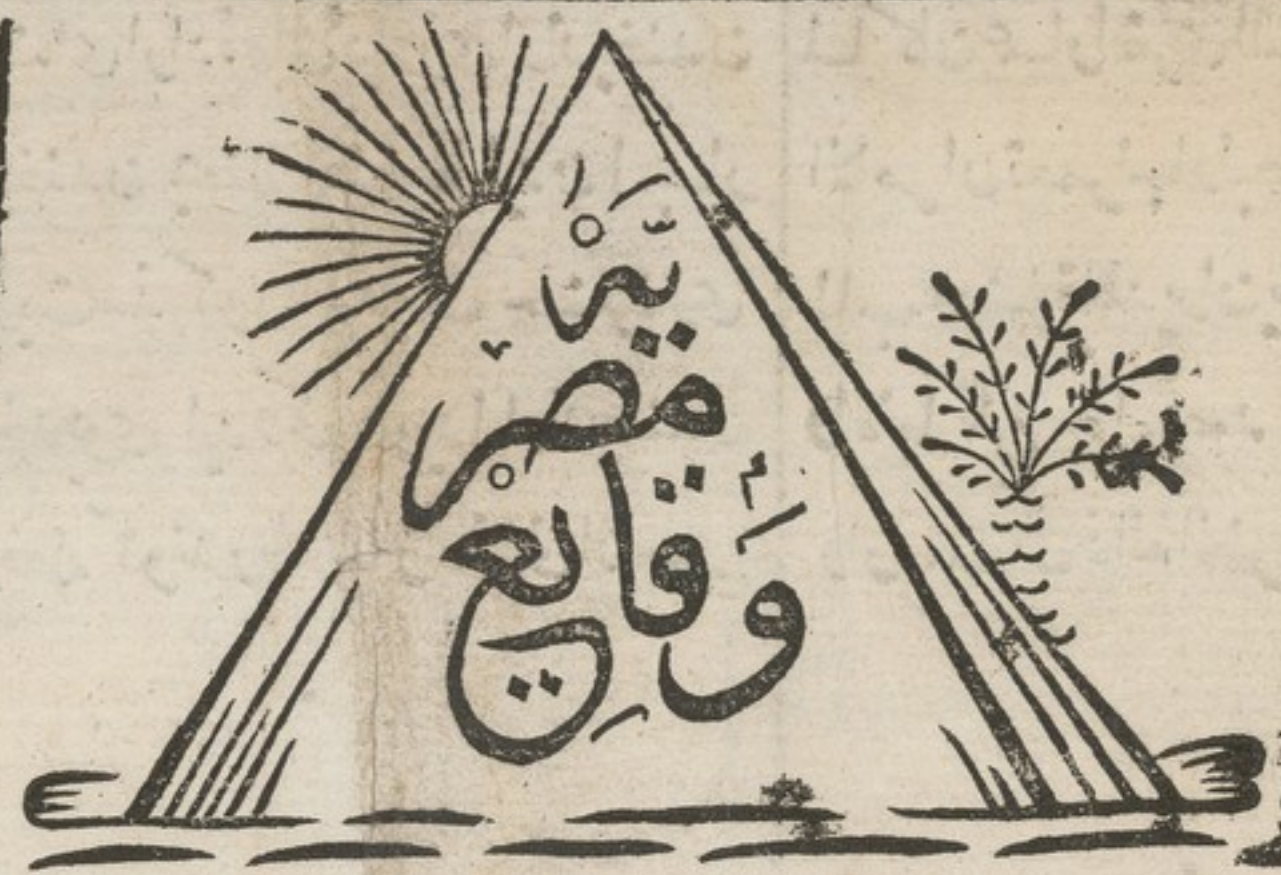 وَقايع
مصر
يّه